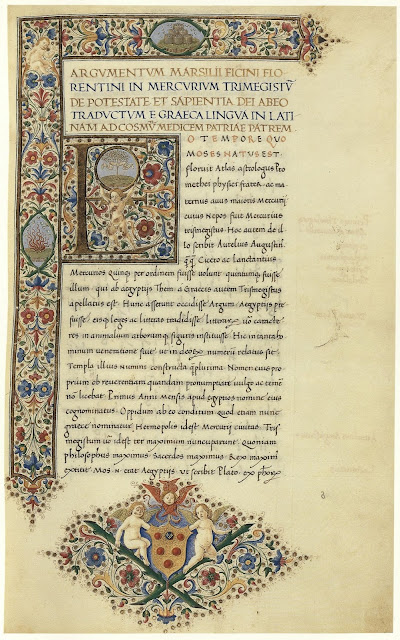 ARGVMENTVM MARSILII FICINI FLO
RENTINI IN MERCVRIVM TRIMEGISTṼ
DE POTESTATE ET SAPIENTIA DEI AB EO
TRADVCTVM E GRAECA LINGVA IN LATI
NAM AD COSMṼ MEDICEM PATRIAE PATREM
EO TEMPORE QVO
MOSES NATVS EST
floruit Atlas astrologus Pro
methei physici frater. ac ma
ternus auus maioris Mercurii
cuius Nepos fuit Mercurius
trismegistus. Hoc autem de il
lo scribit Aurelius Augustin.
Cicero ac Lanctantius
Mercurios Quinq; per ordinem fuisse uolunt quintumq; fuisse
illum qui ab aegyptiis Them a Graecis autem Trismegistus
apellatus est. Hunc asserunt occidisse Argum Aegyptiis pre
fuisse eisq; leges ac litteras tradidisse litterarum uero caracte
res in animalium arborumq; figuris instituisse. Hic in tanta ho
minum ueneratione fuit ut in deorum numerum relatus sit.
Templa illius Numini constructa quplurima. Nomen eius pro
prium ob reuerentiam quandam pronuntiari uulgo ac temere
no licebat. Primus Anni Mensis apud egyptios nomine eius
cognominatus. Oppidum ab eo conditum quod etiam nunc
graece nominatur Hermopolis idest Mercurii ciuitas. Tris
megistum uero idest ter maximum nuncuparunt. Quoniam
philosophus maximus Sacerdos maximus Rex maximus
extitit. Mos erat Aegyptiis Vt scribit Plato ex phorum